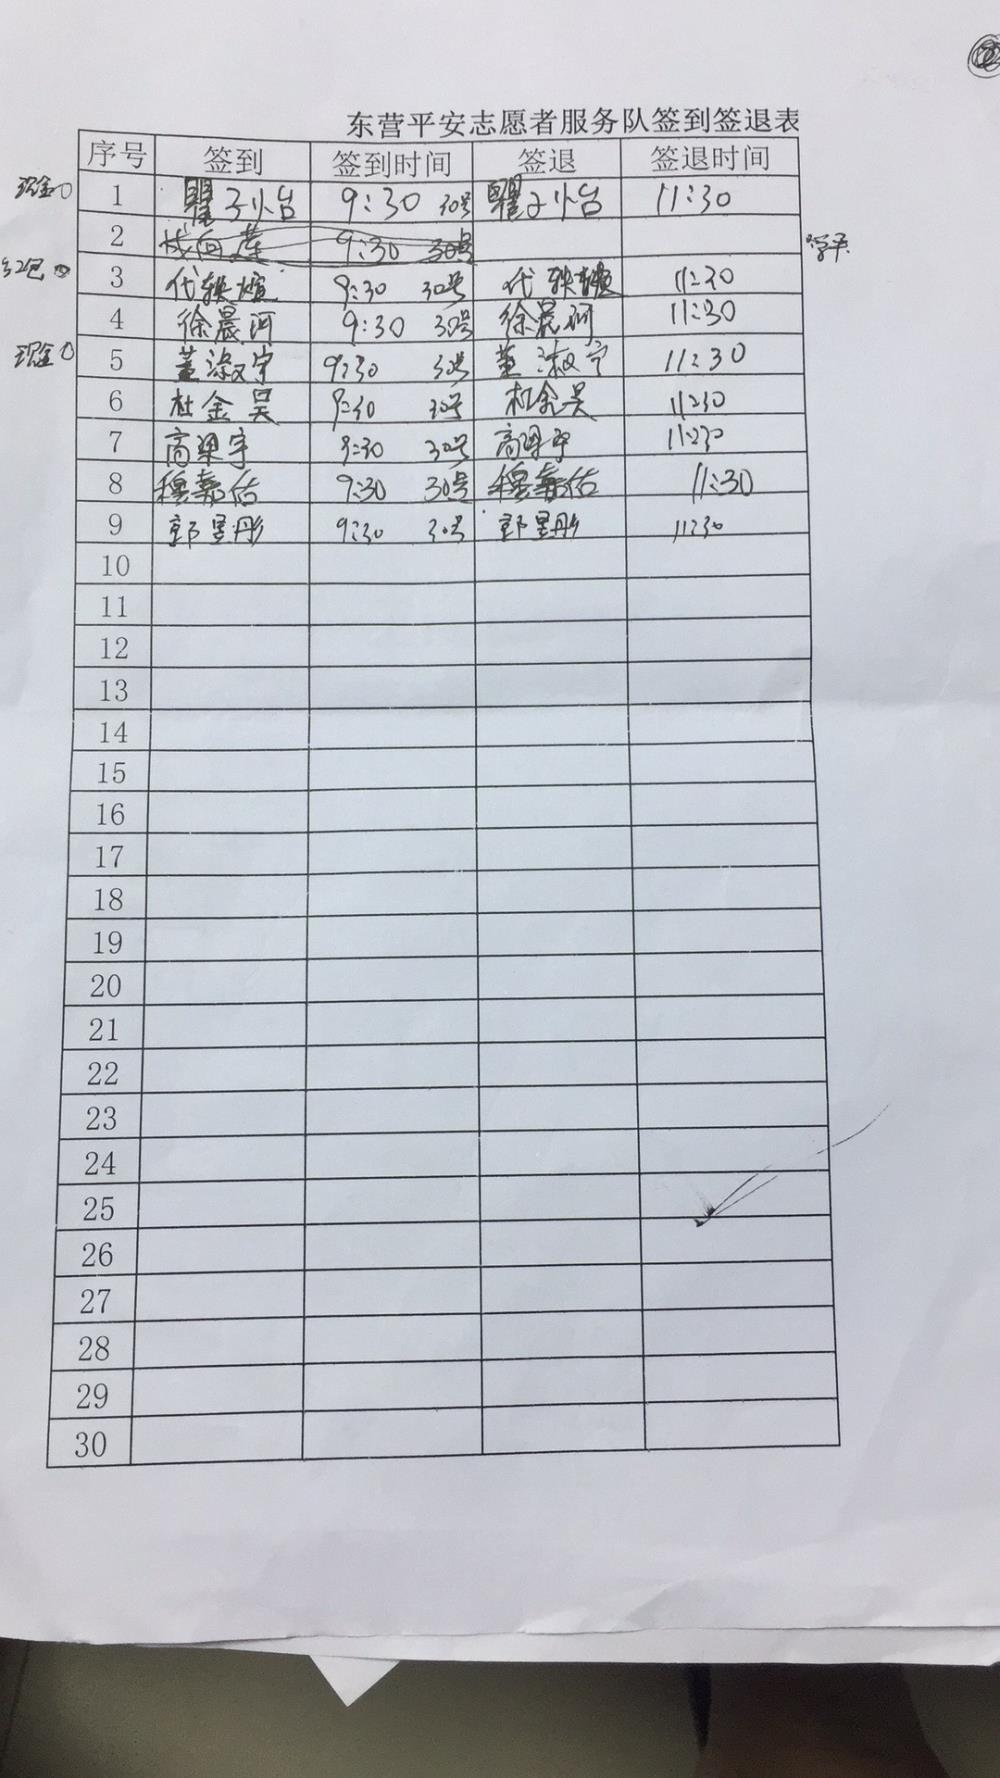 东营平安志愿者服务队签到签退表
序号 签到 签到时间 签退 签退时间
现金 1 瞿子怡 9:30 30号 瞿子怡 11:30
2 9:30 30号
红包 3 代轶煊 9:30 30号 代轶煊 11:30
4 徐晨河 9:30 30号 徐晨河 11:30
现金 5 董淑宇 9:30 30号 董淑宇 11:30
6 杜金昊 9:30 30号 杜金昊 11:30
7 高梁宇 9:30 30号 高梁宇 11:30
8 穆嘉佑 9:30 30号 穆嘉佑 11:30
9 郭昱彤 9:30 30号 郭昱彤 11:30
10
11
12
13
14
15
16
17
18
19
20
21
22
23
24
25
26
27
28
29
30